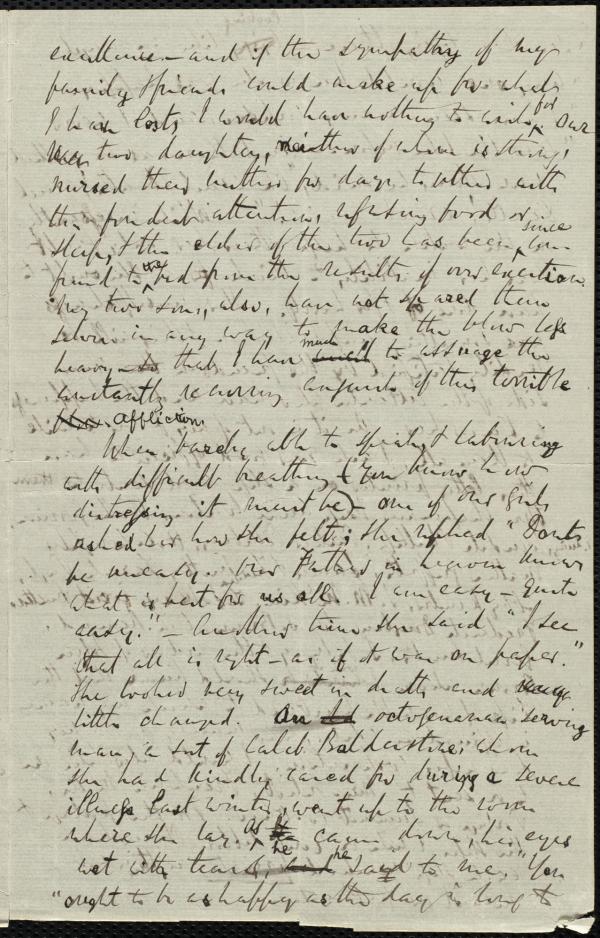 excellence – and if the sympathy of my
family & friends could make up for what
I have lost, I would have nothing to wish for. Our
two daughters, neither of whom is strong,
nursed their mother for days together with
the fondest attention, refusing food or
sleep, & the elder of the two has been since
to the bed from the results of over exertion.
My two sons, also, have not spared them
selves in any way to make the blow less
heavy – so that I have much to assuage the
constantly recurring anguish of this terrible
affliction.
When barely able to speak, & labouring
with difficult breathing (you know how
distressing it must be) – one of our girls
asked her how she felt; she replied "Dont
be uneasy. Our Father in heaven knows
what is best for us all. I am easy – quite
easy." – Another time she said "I see
that all is right – as if it was on paper."
She looked very sweet in death and
little changed. An octogenarian serving
man, a sort of Caleb Balderstone, whom
she had kindly cared for during a severe
illness last winter, went up to the room
where she lay. As he came down, his eyes
wet with tears, he said to me, "You
"ought to be as happy as the day is long to